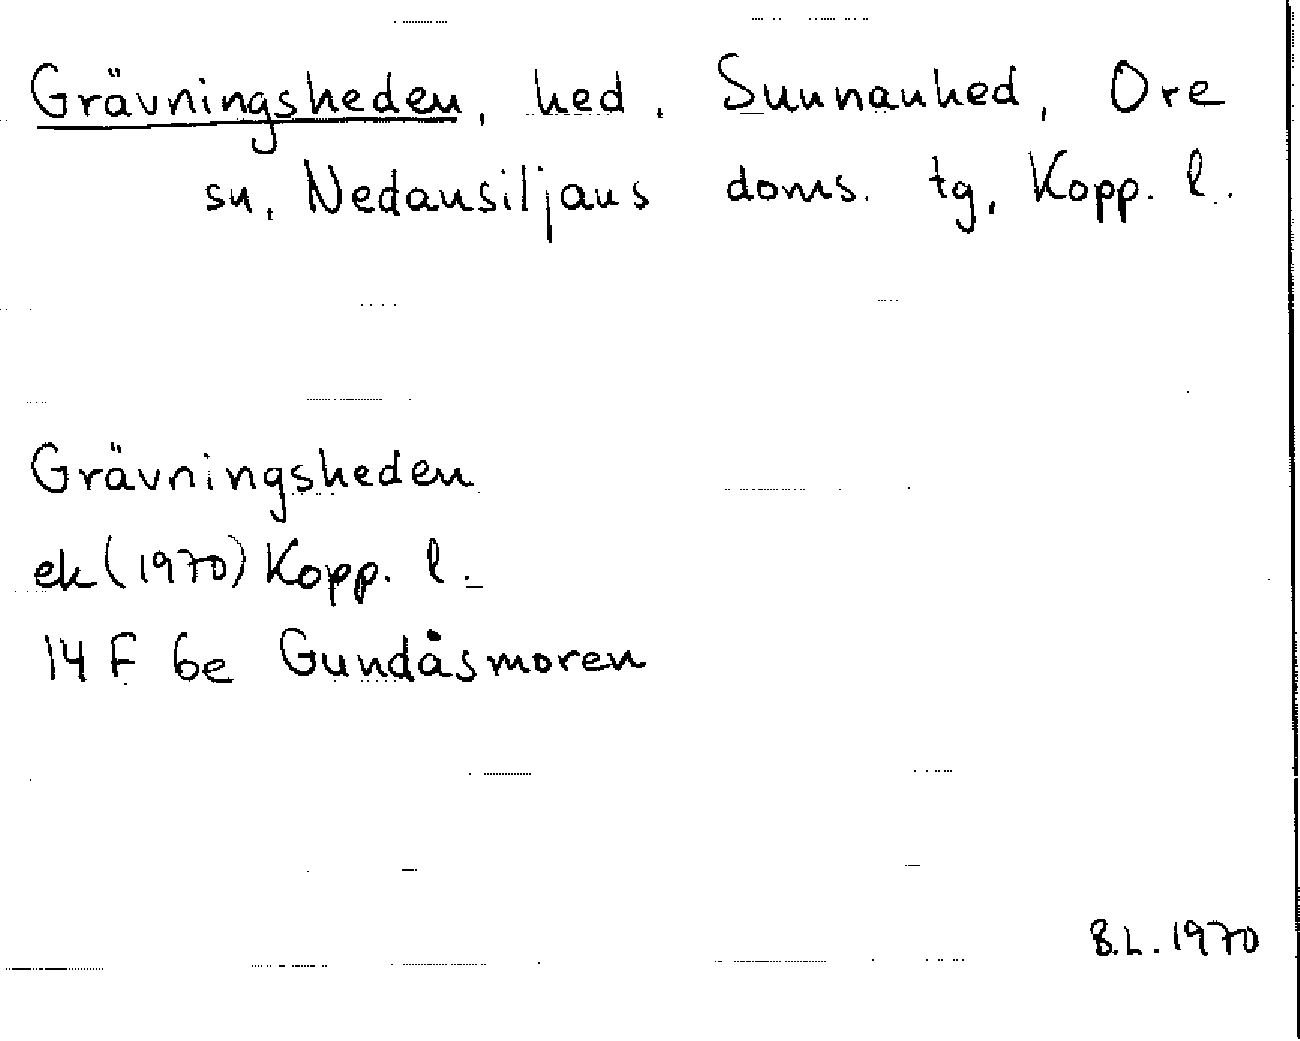 Grävningsheden, hed. Sunnanhed, Ore
sn, Nedansiljans doms. tg, Kopp. l.
Grävningsheden
ek (1970) Kopp. l.
14 F 6e Gundåsmoren
B.L. 1970